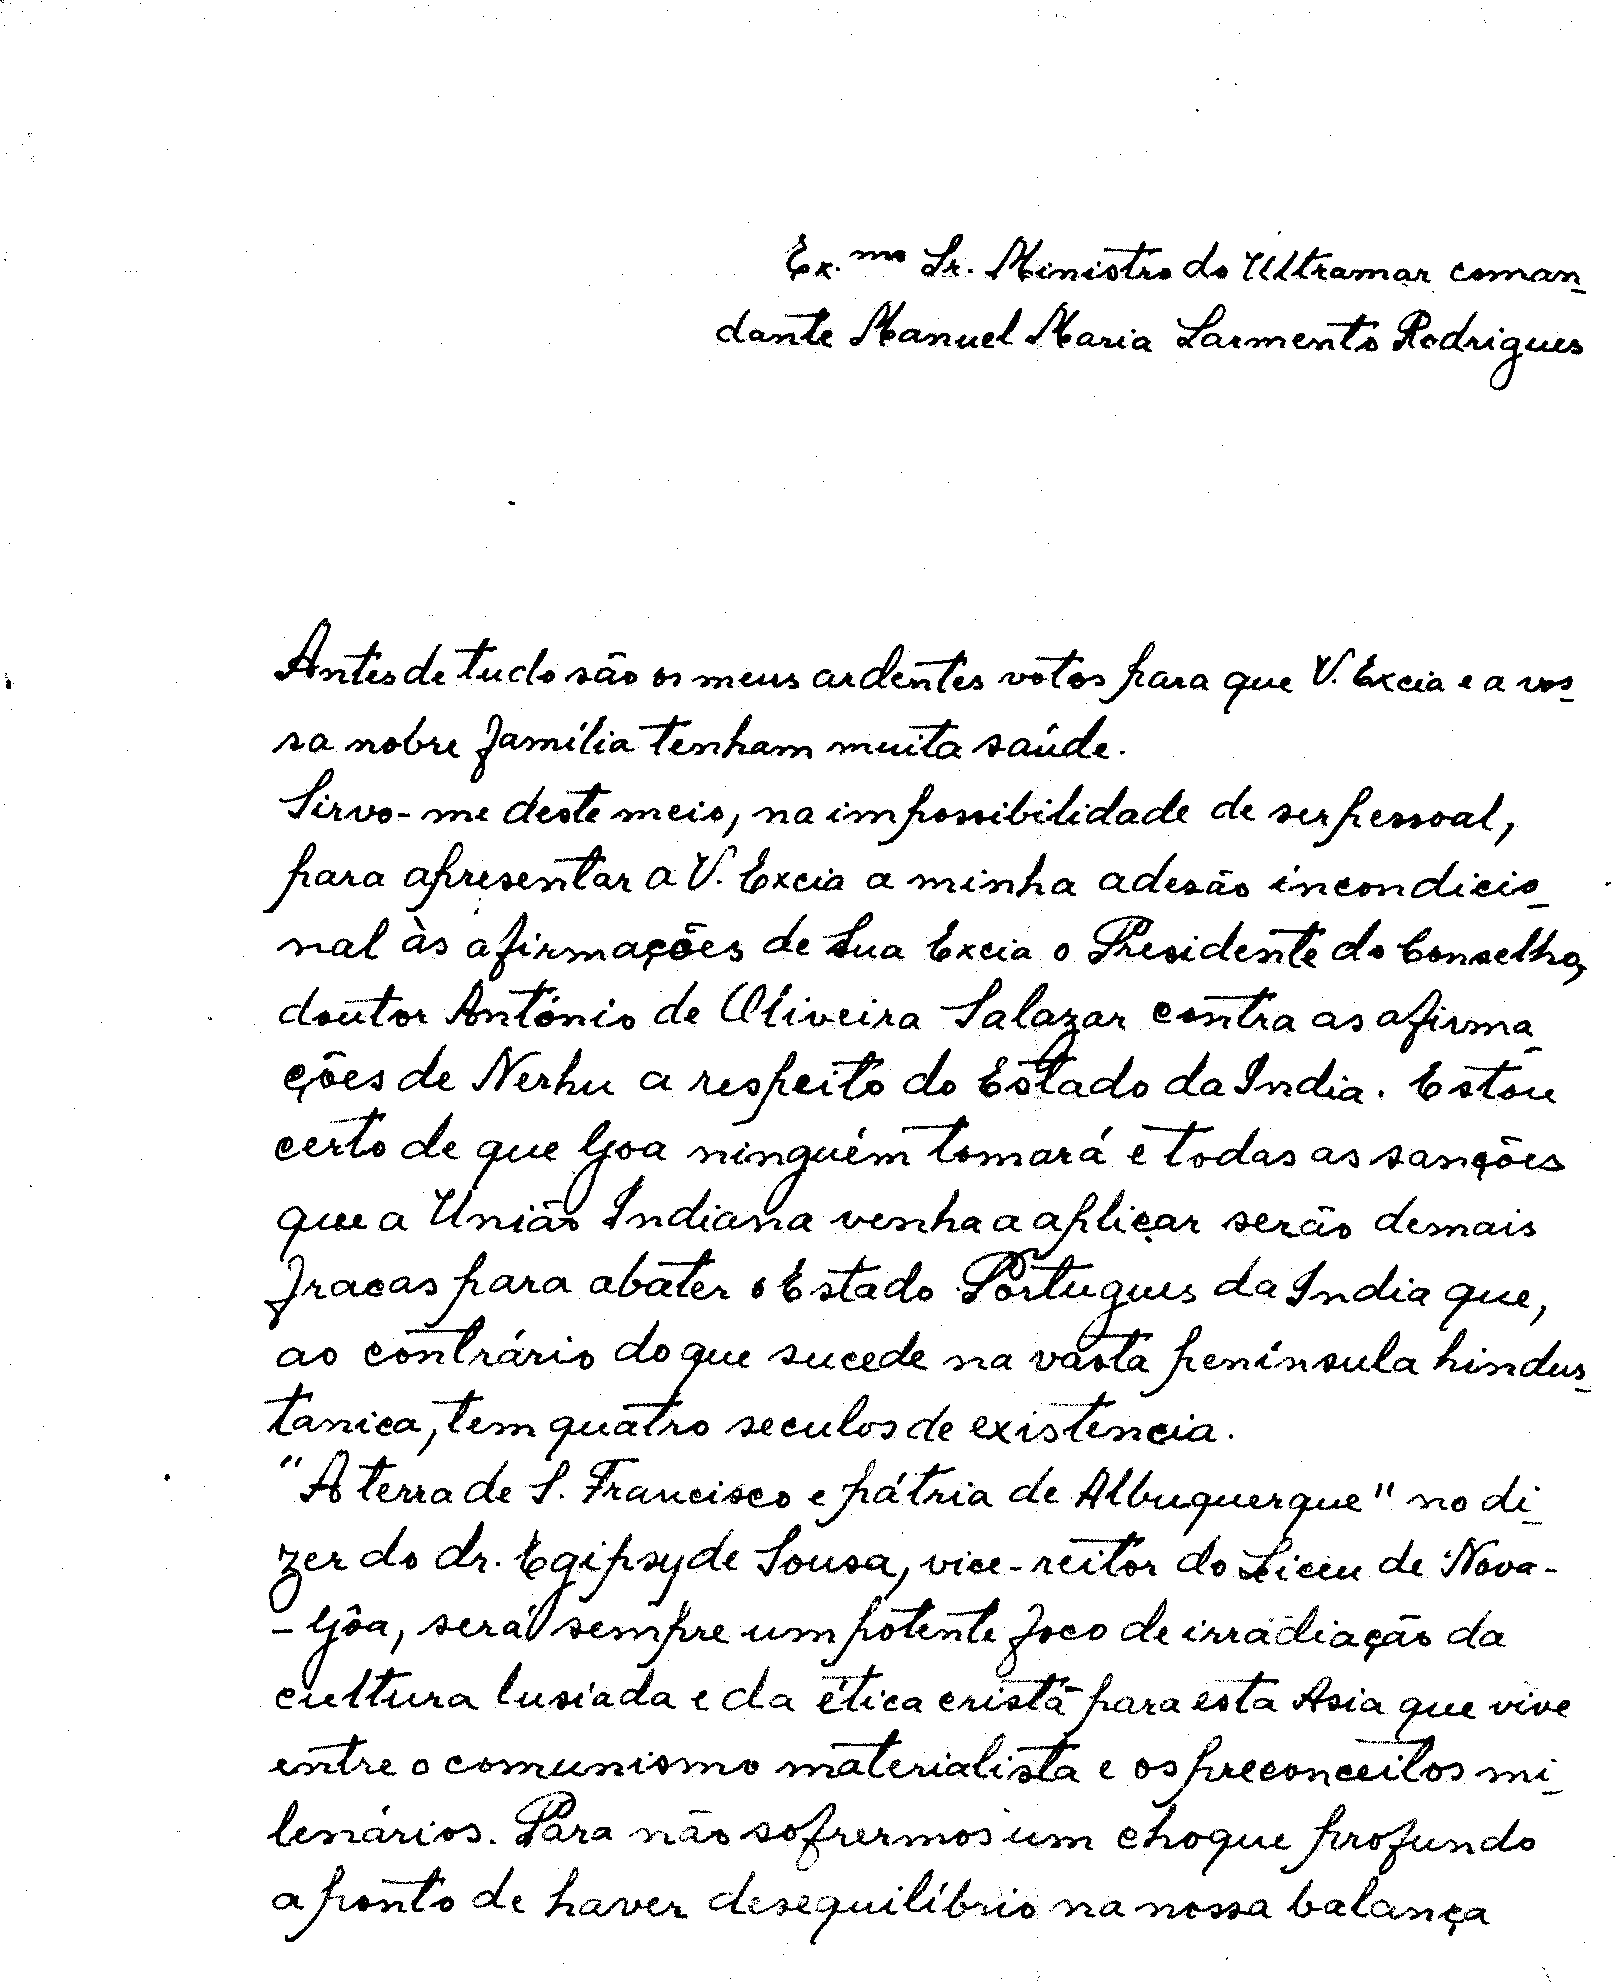 Ex.mo Sr. Ministro do Ultramar coman-
dante Manuel Maria Sarmento Rodrigues
Antes de tudo são os meus ardentes votos para que V. Excia e a vos-
sa nobre família tenham muita saúde.
Sirvo-me deste meio, na impossibilidade de ser pessoal,
para apresentar a V. Excia a minha adesão incondicio-
nal às afirmações de Sua Excia o Presidente do Conselho,
doutor António de Oliveira Salazar contra as afirma-
ções de Nerhu a respeito do Estado da India. Estou
certo de que Goa ninguém tomará e todas as sanções
que a União Indiana venha a apliçar serão demais
fracas para abater o Estado Portugues da India que,
ao contrário do que sucede na vasta península hindus-
tanica, tem quatro seculos de existencia.
"A terra de S. Francisco e pátria de Albuquerque" no di-
zer do dr. Egipsy de Sousa, vice-reitor do Liceu de Nova-
-Gôa, será sempre um potente foco de irradiação da
cultura lusiada e da ética cristã para esta Asia que vive
entre o comunismo materialista e os preconceitos mi-
lenários. Para não sofrermos um choque profundo
a ponto de haver desequilíbrio na nossa balança